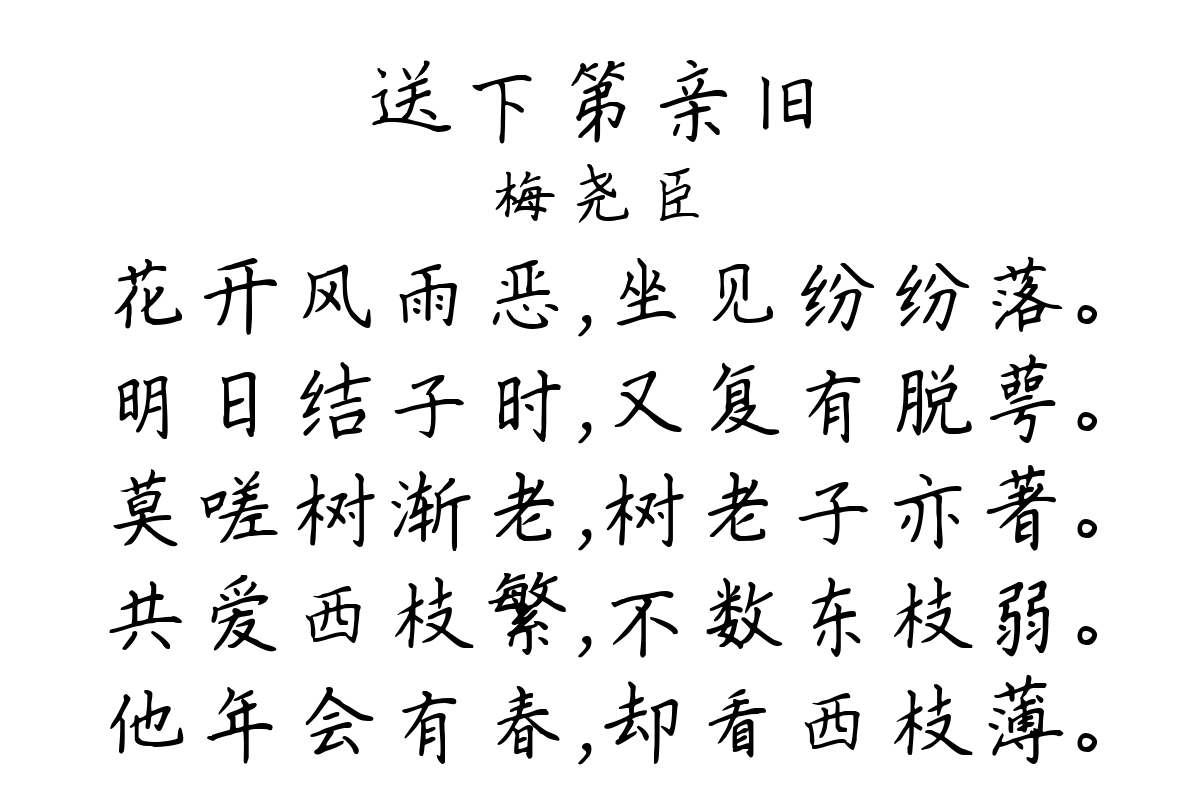 送下第亲旧
梅尧臣
花开风雨恶,坐见纷纷落。
明日结子时,又复有脱萼。
莫嗟树渐老,树老子亦著。
共爱西枝繁,不数东枝弱。
他年会有春,却看西枝薄。